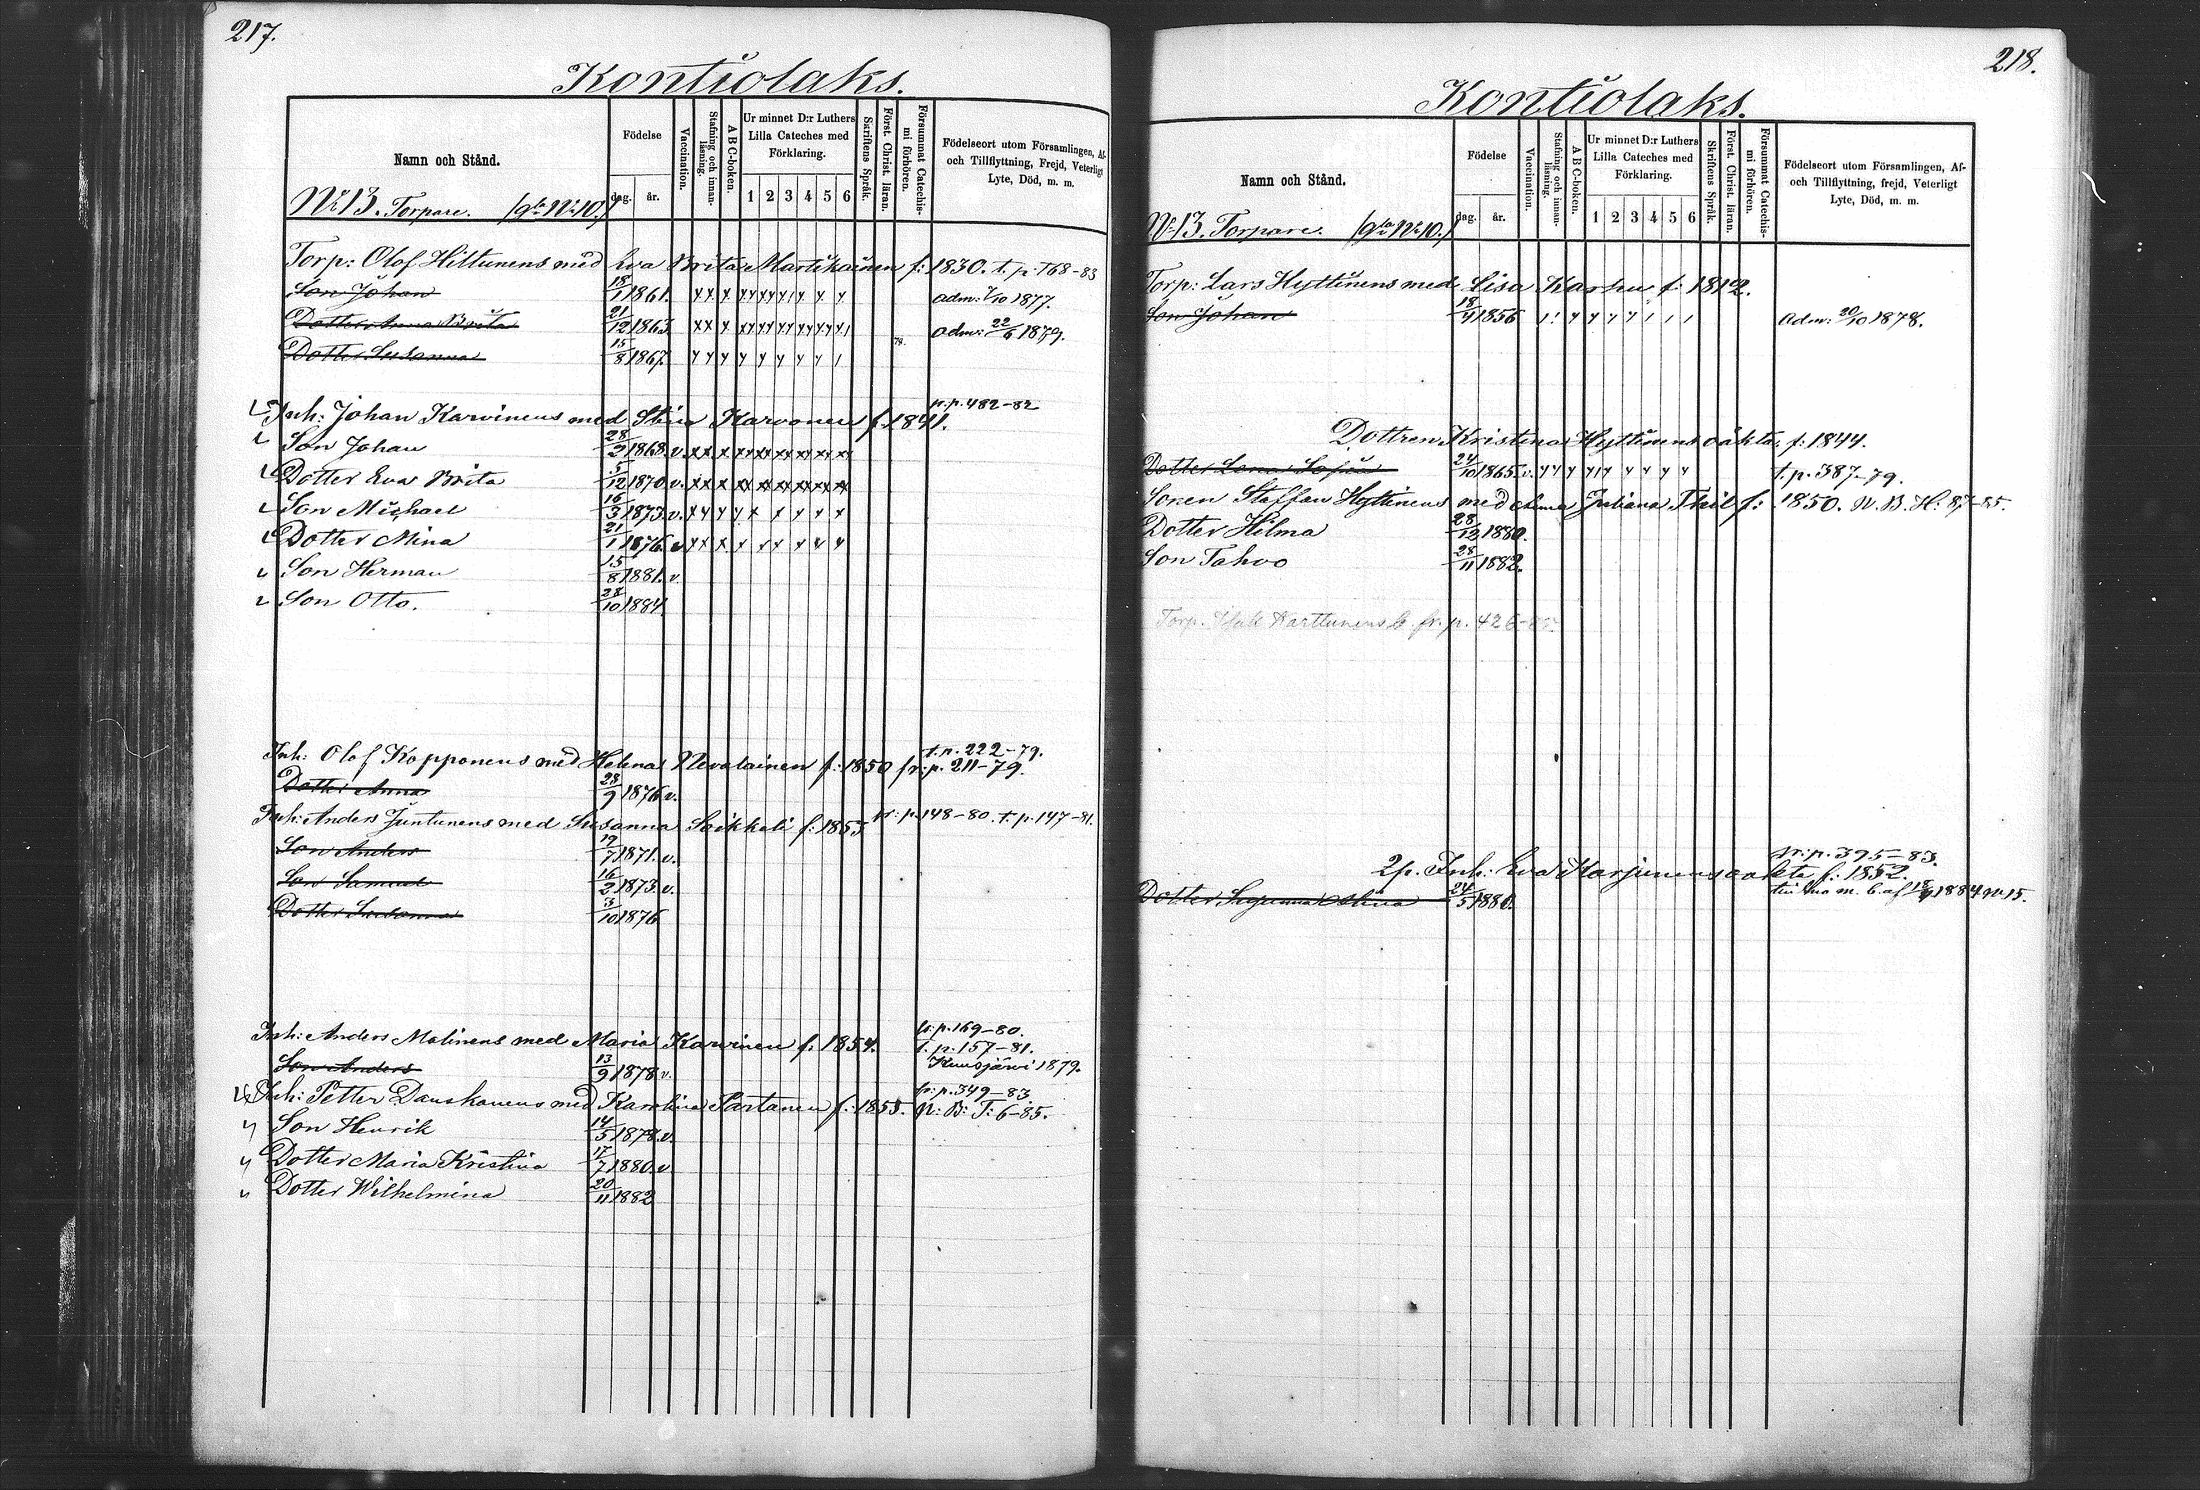 217.
Kontiolaks.
Namn och Stånd.
Födelse
dag. år.
Vaccination.
Stafning och innanläsning.
A B C-boken.
Ur minnet D:r Luthers Lilla Cateches med Förklaring.
1 2 3 4 5 6
Skriftens Språk.
Först. Christ. läran.
Försummat Catechismi förhören.
Födelseort utom Församlingen, Af- och Tillflyttning, Frejd, Veterligt Lyte, Död, m. m.
No 13. Torpare. (gla No 10.)
Torp: Olof Hiltunens med Eva Brita Martikainen f: 1830. t. p. 768-83
Son Johan 18/1 1861. adm: 7/10 1877.
Dotter Anna Brita 21/12 1863. adm: 22/6 1879.
Dotter Susanna 15/8 1867.
fr. p. 482-82
Inh: Johan Karvinens med Stina Karvonen f. 1841.
Son Johan 28/2 1868. v.
Dotter Eva Brita 5/12 1870. v.
Son Michael 16/3 1873. v.
Dotter Mina 21/1 1876. v
Son Herman 15/8 1881. v.
Son Otto. 28/10 1884.
t. p. 222-79.
Inh: Olof Kopponens med Helena Nevalainen f: 1850 fr: p. 211-79.
Dotter Anna 28/9 1876 v.
Inh: Anders Juntunens med Susanna Soikkeli f: 1853 fr: p. 148-80. t. p. 147-81.
Son Anders 19/7 1871. v.
Son Samuel 16/2 1873. v.
Dotter Susanna 3/10 1876
fr. p. 169-80.
Inh: Anders Malinens med Maria Karvinen f. 1854. t. p. 157-81.
Son Anders 13/9 1878 v. Kuusjärvi 1879.
fr: p. 349-83.
Inh: Petter Danskanens med Karolina Sartanen f: 1853. N: B: T: 6-85.
Son Henrik 14/5 1878. v.
Dotter Maria Kristina 17/7 1880. v
Dotter Wilhelmina 20/11 1882
218.
Kontiolaks.
Namn och Stånd.
Födelse
dag. år.
Vaccination.
Stafning och innanläsning.
A B C-boken.
Ur minnet D:r Luthers Lilla Cateches med Förklaring.
1 2 3 4 5 6
Skriftens Språk.
Först. Christ. läran.
Försummat Catechismi förhören.
Födelseort utom Församlingen, Af- och Tillflyttning, frejd, Veterligt Lyte, Död, m. m.
No 13. Torpare. (gla No 10.)
Torp: Lars Hyttinens med Lisa Karhu f: 1812.
Son Johan 18/4 1856 adm: 20/10 1878.
Dottren Kristina Hyttinens oäkta, f: 1844.
Dotter Lena Sofia 24/10 1865. v. t. p. 387-79.
Sonen Staffan Hyttinens med Anna Juliana Thil f: 1850. N. B. H: 87-85.
Dotter Hilma 28/12 1880.
Son Tahvo 28/11 1882.
Torp. Karttunens b. fr. p. 426-82
fr: p. 395-83.
2p. Inh: Eva Karjunens oäkta f: 1852.
Dotter Susanna Alina 24/5 1880.